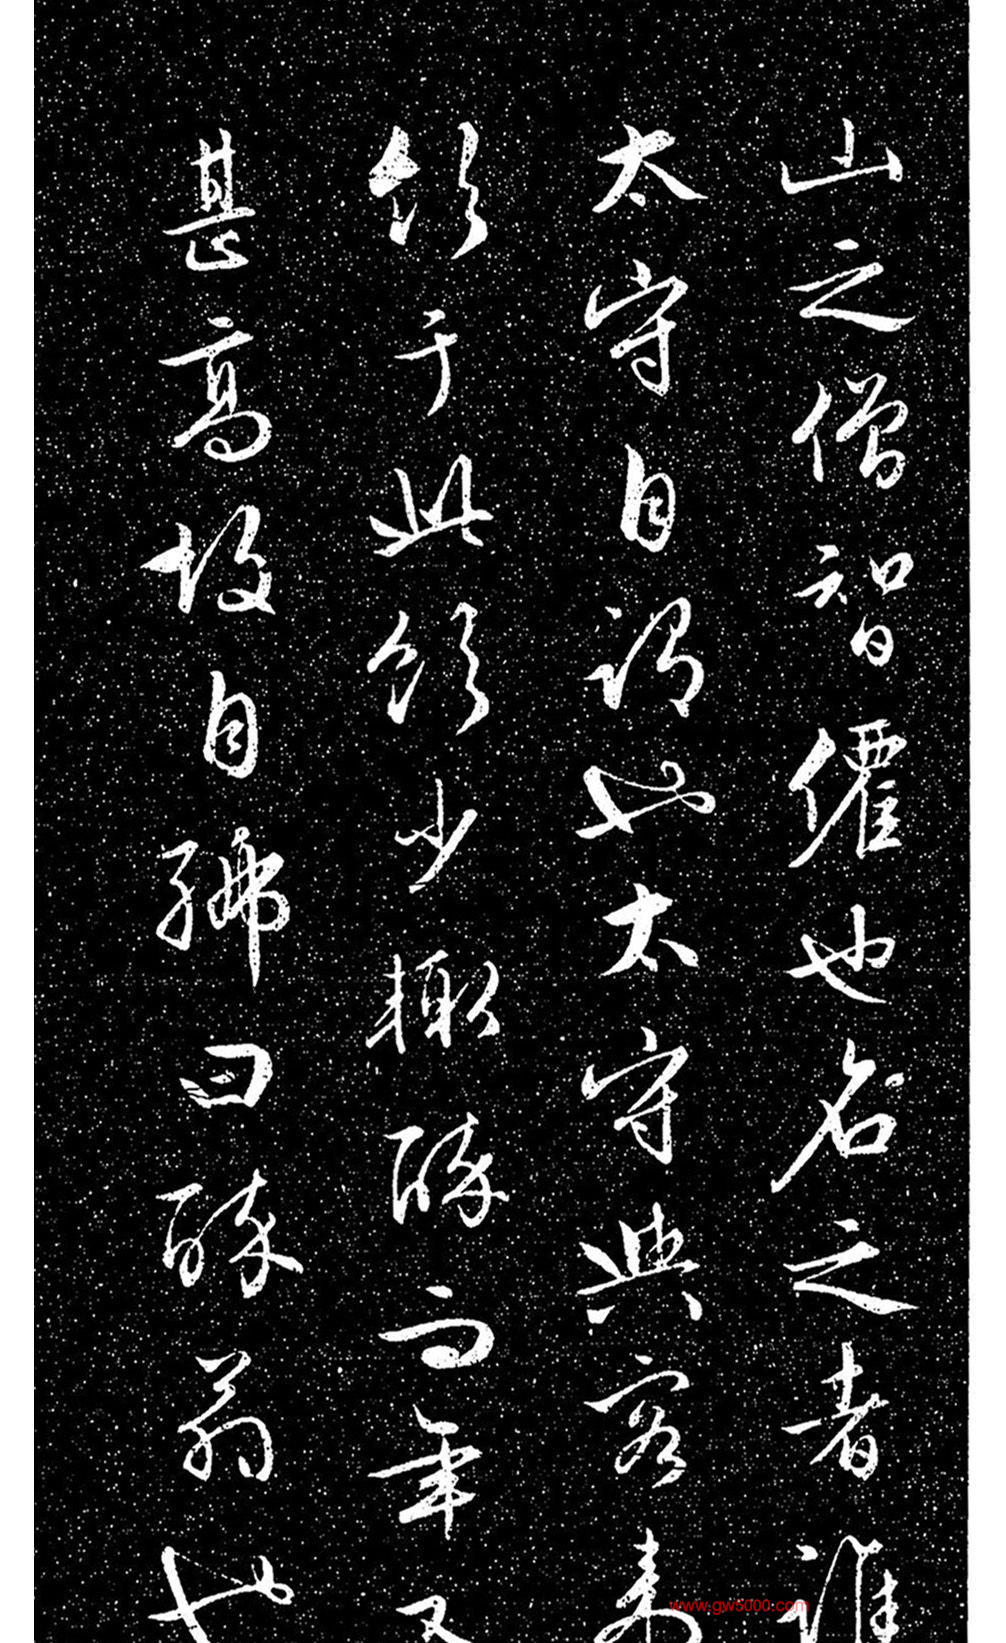 山之僧智僊也名之者誰
太守自謂也太守與客来
飲于此飲少輒醉而年又
甚高故自號曰醉翁也
www.gw5000.com